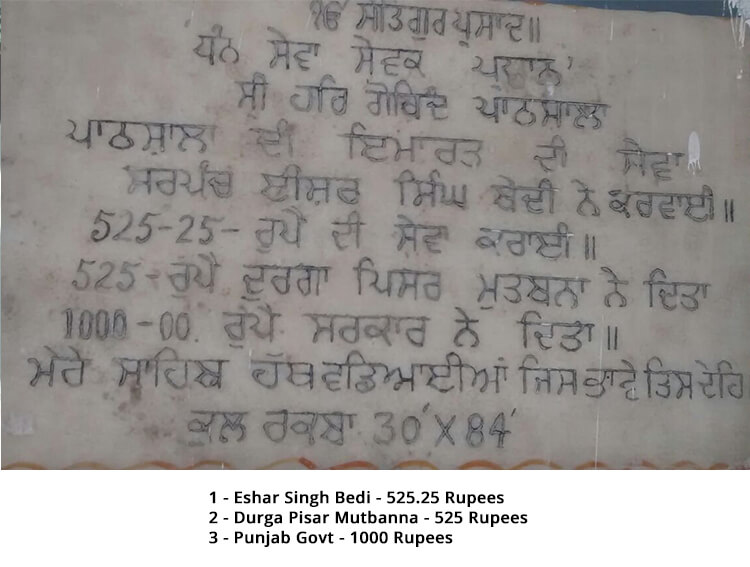 ੴ ਸਤਿਗੁਰ ਪ੍ਰਸਾਦ॥
ਧੰਨ ਸੇਵਾ ਸੇਵਕ ਪ੍ਰਵਾਨ
ਸ੍ਰੀ ਹਰਿ ਗੋਬਿੰਦ ਪਾਠਸਾਲਾ
ਪਾਠਸ਼ਾਲਾ ਦੀ ਇਮਾਰਤ ਦੀ ਸੇਵਾ
ਸਰਪੰਚ ਈਸ਼ਰ ਸਿੰਘ ਬੇਦੀ ਨੇ ਕਰਵਾਈ॥
525-25- ਰੁਪੈ ਦੀ ਸੇਵਾ ਕਰਾਈ॥
525-ਰੁਪੈ ਦੁਰਗਾ ਪਿਸਰ ਮੁਤਬਨਾ ਨੇ ਦਿਤਾ
1000-00. ਰੁਪੈ ਸਰਕਾਰ ਨੇ ਦਿਤਾ॥
ਮੇਰੇ ਸਾਹਿਬ ਹੱਥ ਵਡਿਆਈਆਂ ਜਿਸ ਭਾਵੇ ਤਿਸ ਦੇਹਿ
ਕੁਲ ਰਕਬਾ 30'X84'
1 - Eshar Singh Bedi - 525.25 Rupees
2 - Durga Pisar Mutbanna - 525 Rupees
3 - Punjab Govt - 1000 Rupees